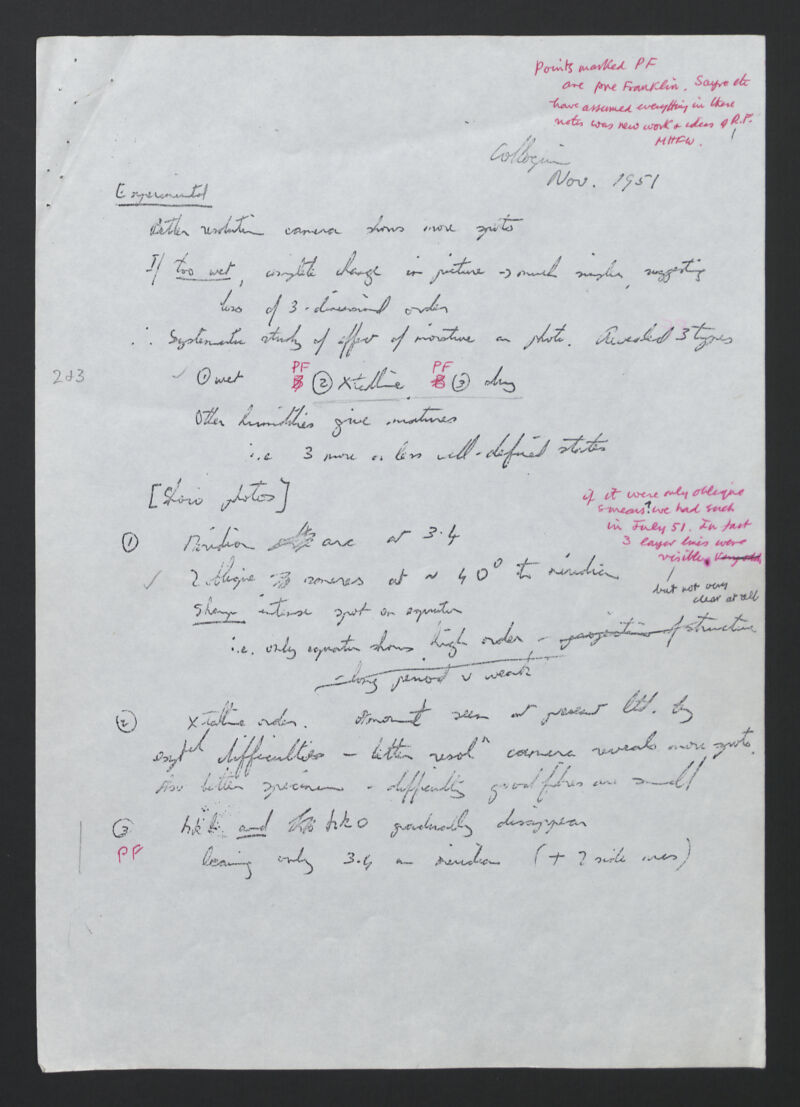 Points marked PF
are pre Franklin. Sayre etc
have assumed everything in these
notes was new work & ideas of R.F.!
MHFW.
Colloquium
Nov. 1951
Experimental
Better resolution camera shows more spots
If too wet, complete change in picture → much simpler, suggesting
loss of 3-dimensional order
∴ Systematic study of effect of moisture on photo. Revealed 3 types
2d3
✓ ① wet PF ② Xtalline PF ③ dry
Other humidities give mixtures
i.e. 3 more or less well-defined states
[Show photos]
if it were only oblique
smears? we had such
in July 51. In fact
3 layer lines were
visible,
but not very
clear at all
① Meridian arc at 3.4
✓ 2 oblique smears at ~ 40° to meridian
Sharp intense spot on equator
i.e. only equator shows high order – projection of structure
– long period v weak
② Xtalline order. Amount seen at present ltd. by
exptl difficulties – better resoln camera reveals more spots.
Also better specimen – difficulty good fibres are small
③ hkl and hk0 gradually disappear
PF leaving only 3.4 on meridian (+ 2 side ones)